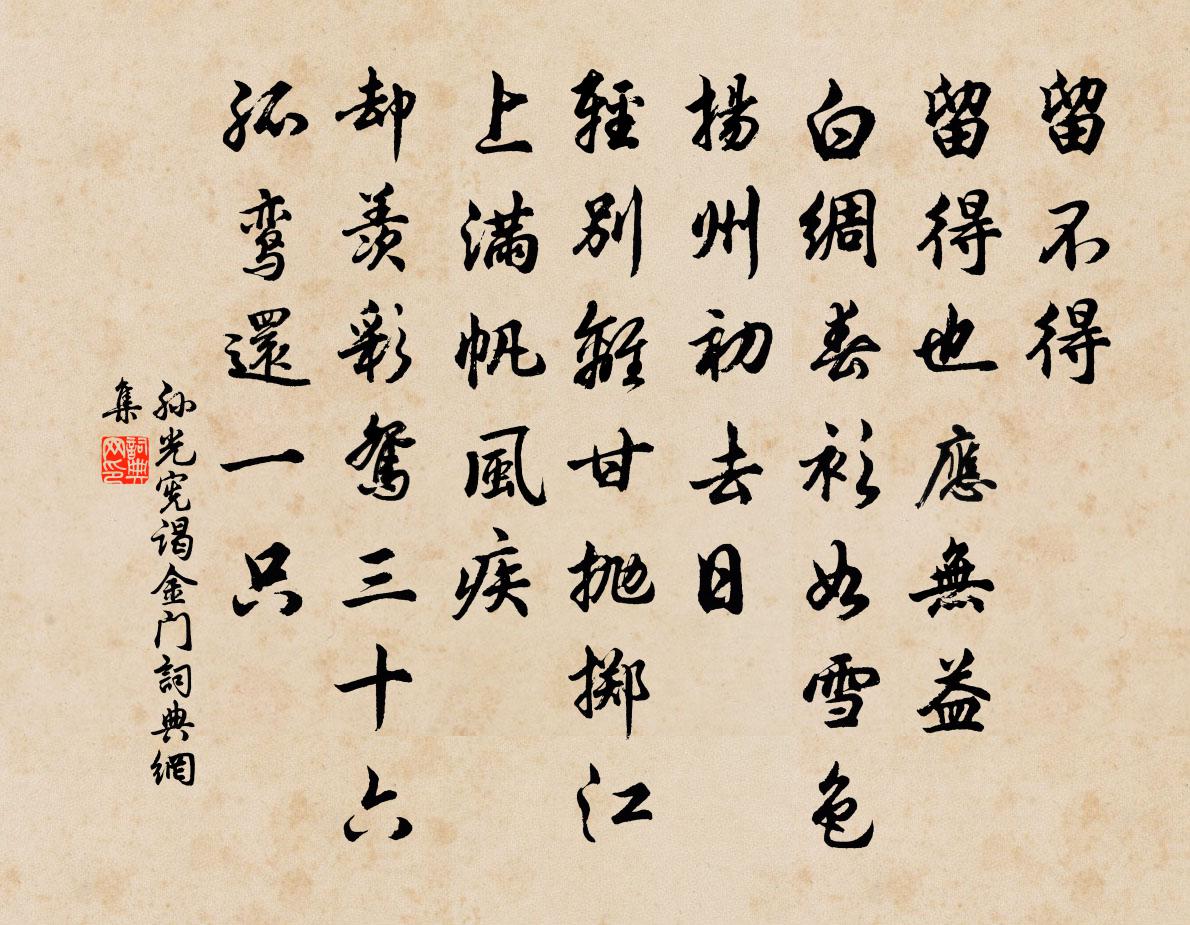 留不得
留得也應無益
白綢春衫如雪色
揚州初去日
輕別離甘抛掷江
上滿帆風疾
却羨彩鴛三十六
孤鸾還一只
孙光宪谒金门詞典網
集
詞典
网印